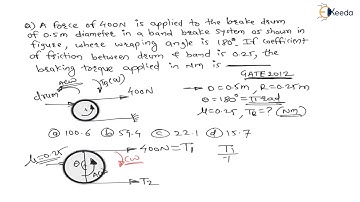 Keeda
Q) A force of 400N is applied to the brake drum
of 0.5m diameter in a band brake system as shown in
figure, where wrapping angle is 180°. If coefficient
of friction between drum & band is 0.25, the
braking torque applied in Nm is
GATE 2012
ACW
TB(CW)
drum
400N
→ D=0.5m, R=0.25m
θ=180°=π rad
μ=0.25, TB=? (Nm)
ⓐ 100.6 ⓑ 54.4 ⓒ 22.1 ⓓ 15.7
μ=0.25
400N=T1
θ
ACW
CW
T2
T1